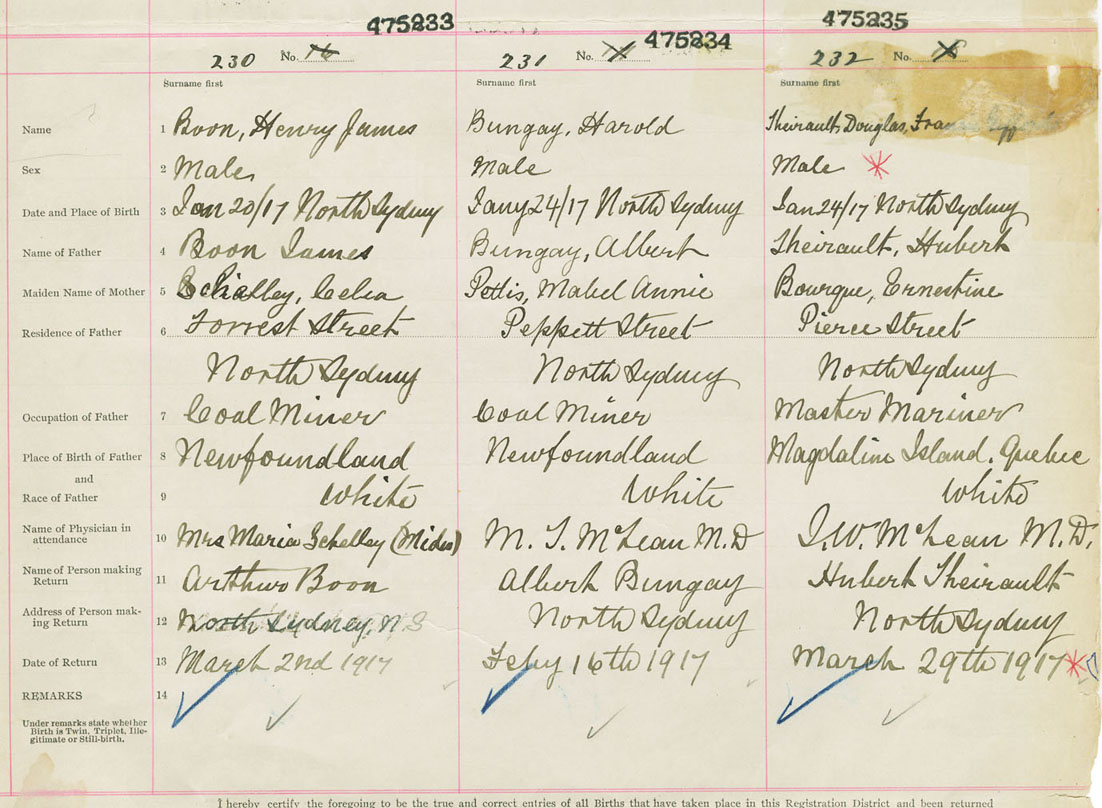 475233 475234 475235
230 No. 231 No. 232 No.
Surname first Surname first Surname first
Name 1 Boon, Henry James Bungay, Harold Theirault, Douglas, Fra
Sex 2 Male Male Male
Date and Place of Birth 3 Jan 20/17 North Sydney Jany 24/17 North Sydney Jan 24/17 North Sydney
Name of Father 4 Boon James Bungay, Albert Theirault, Hubert
Maiden Name of Mother 5 Celia Mabel Annie Bourque, Ernestine
Residence of Father 6 Forrest Street Peppett Street Pierce Street
North Sydney North Sydney North Sydney
Occupation of Father 7 Coal Miner Coal Miner Master Mariner
Place of Birth of Father 8 Newfoundland Newfoundland Magdaline Island. Quebec
and
Race of Father 9 White White White
Name of Physician in
attendance 10 Mrs Maria Schelley M. T. McLean M.D J.W. McLean M.D.
Name of Person making
Return 11 Arthur Boon Albert Bungay Hubert Theirault
Address of Person mak-
ing Return 12 North Sydney, N.S North Sydney North Sydney
Date of Return 13 March 2nd 1917 Feby 16th 1917 March 29th 1917
REMARKS 14
Under remarks state whether
Birth is Twin, Triplet, Ille-
gitimate or Still-birth.
I hereby certify the foregoing to be the true and correct entries of all Births that have taken place in this Registration District and been returned